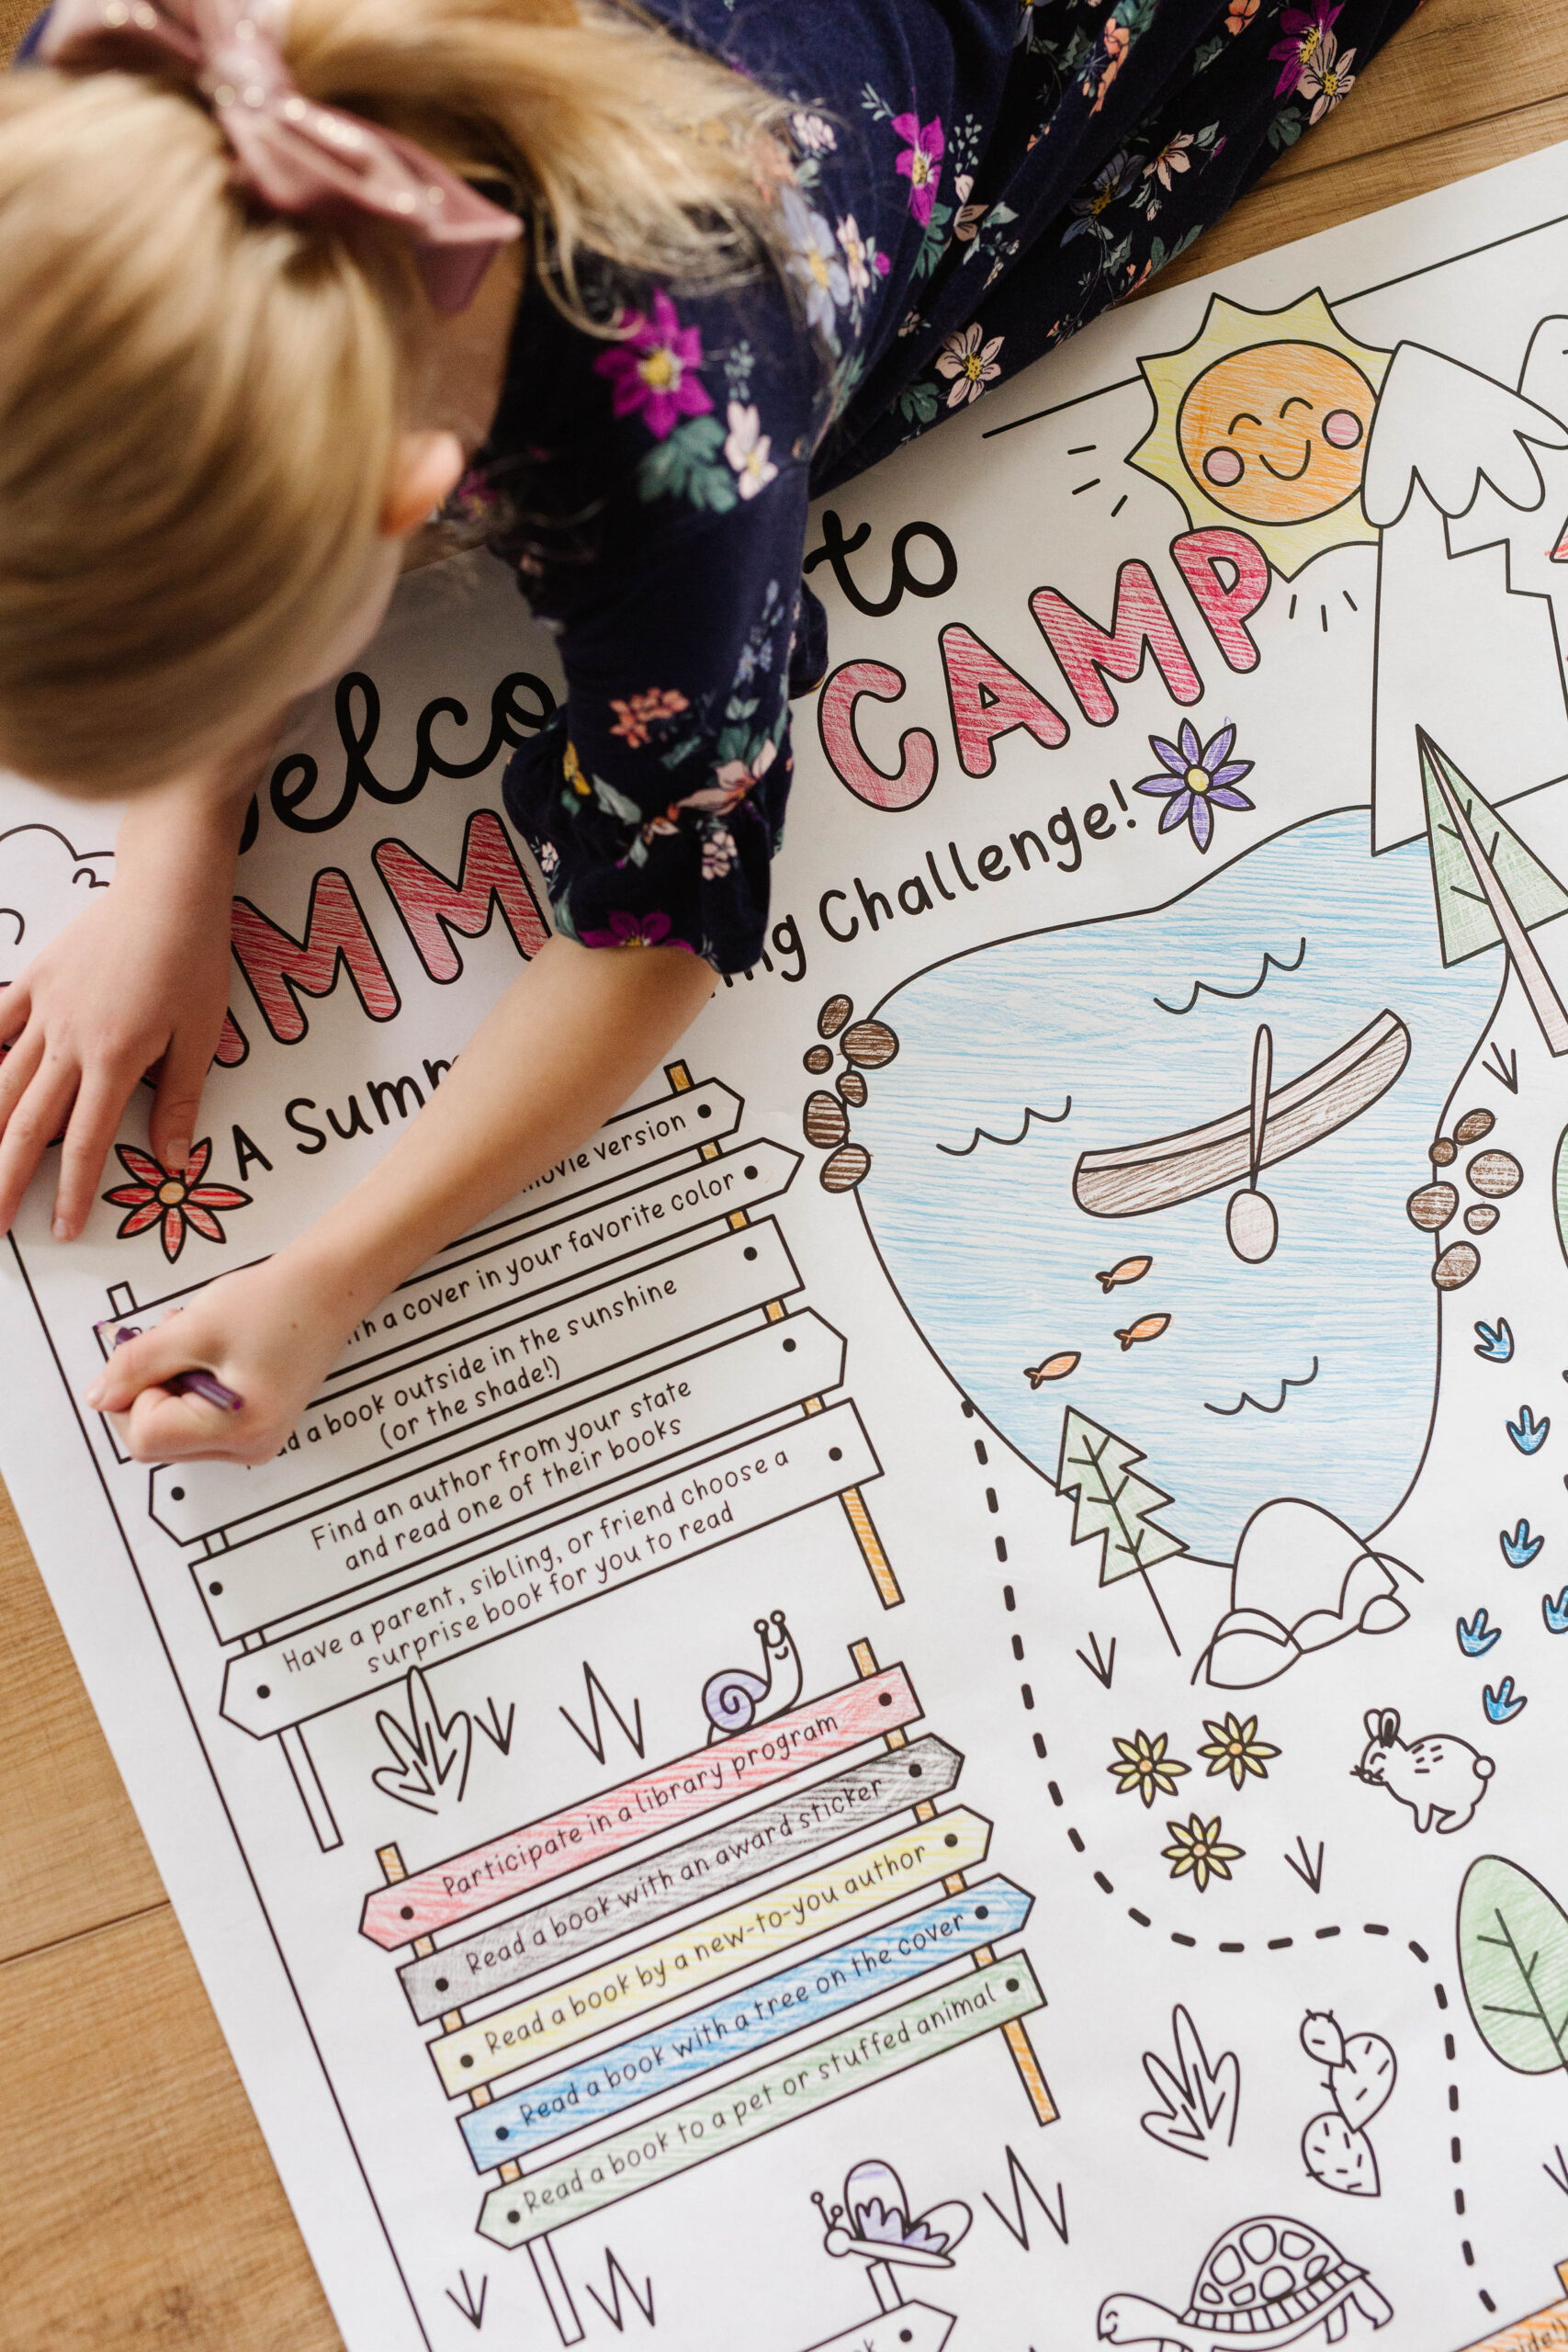 to
CAMP
A
Challenge!
movie version
a cover in your favorite color
a book outside in the sunshine
(or the shade!)
Find an author from your state
and read one of their books
Have a parent, sibling, or friend choose a
surprise book for you to read
Participate in a library program
Read a book with an award sticker
Read a book by a new-to-you author
Read a book with a tree on the cover
Read a book to a pet or stuffed animal